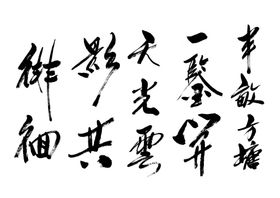 半畝方塘
一鑒開
天光雲
影共
徘徊